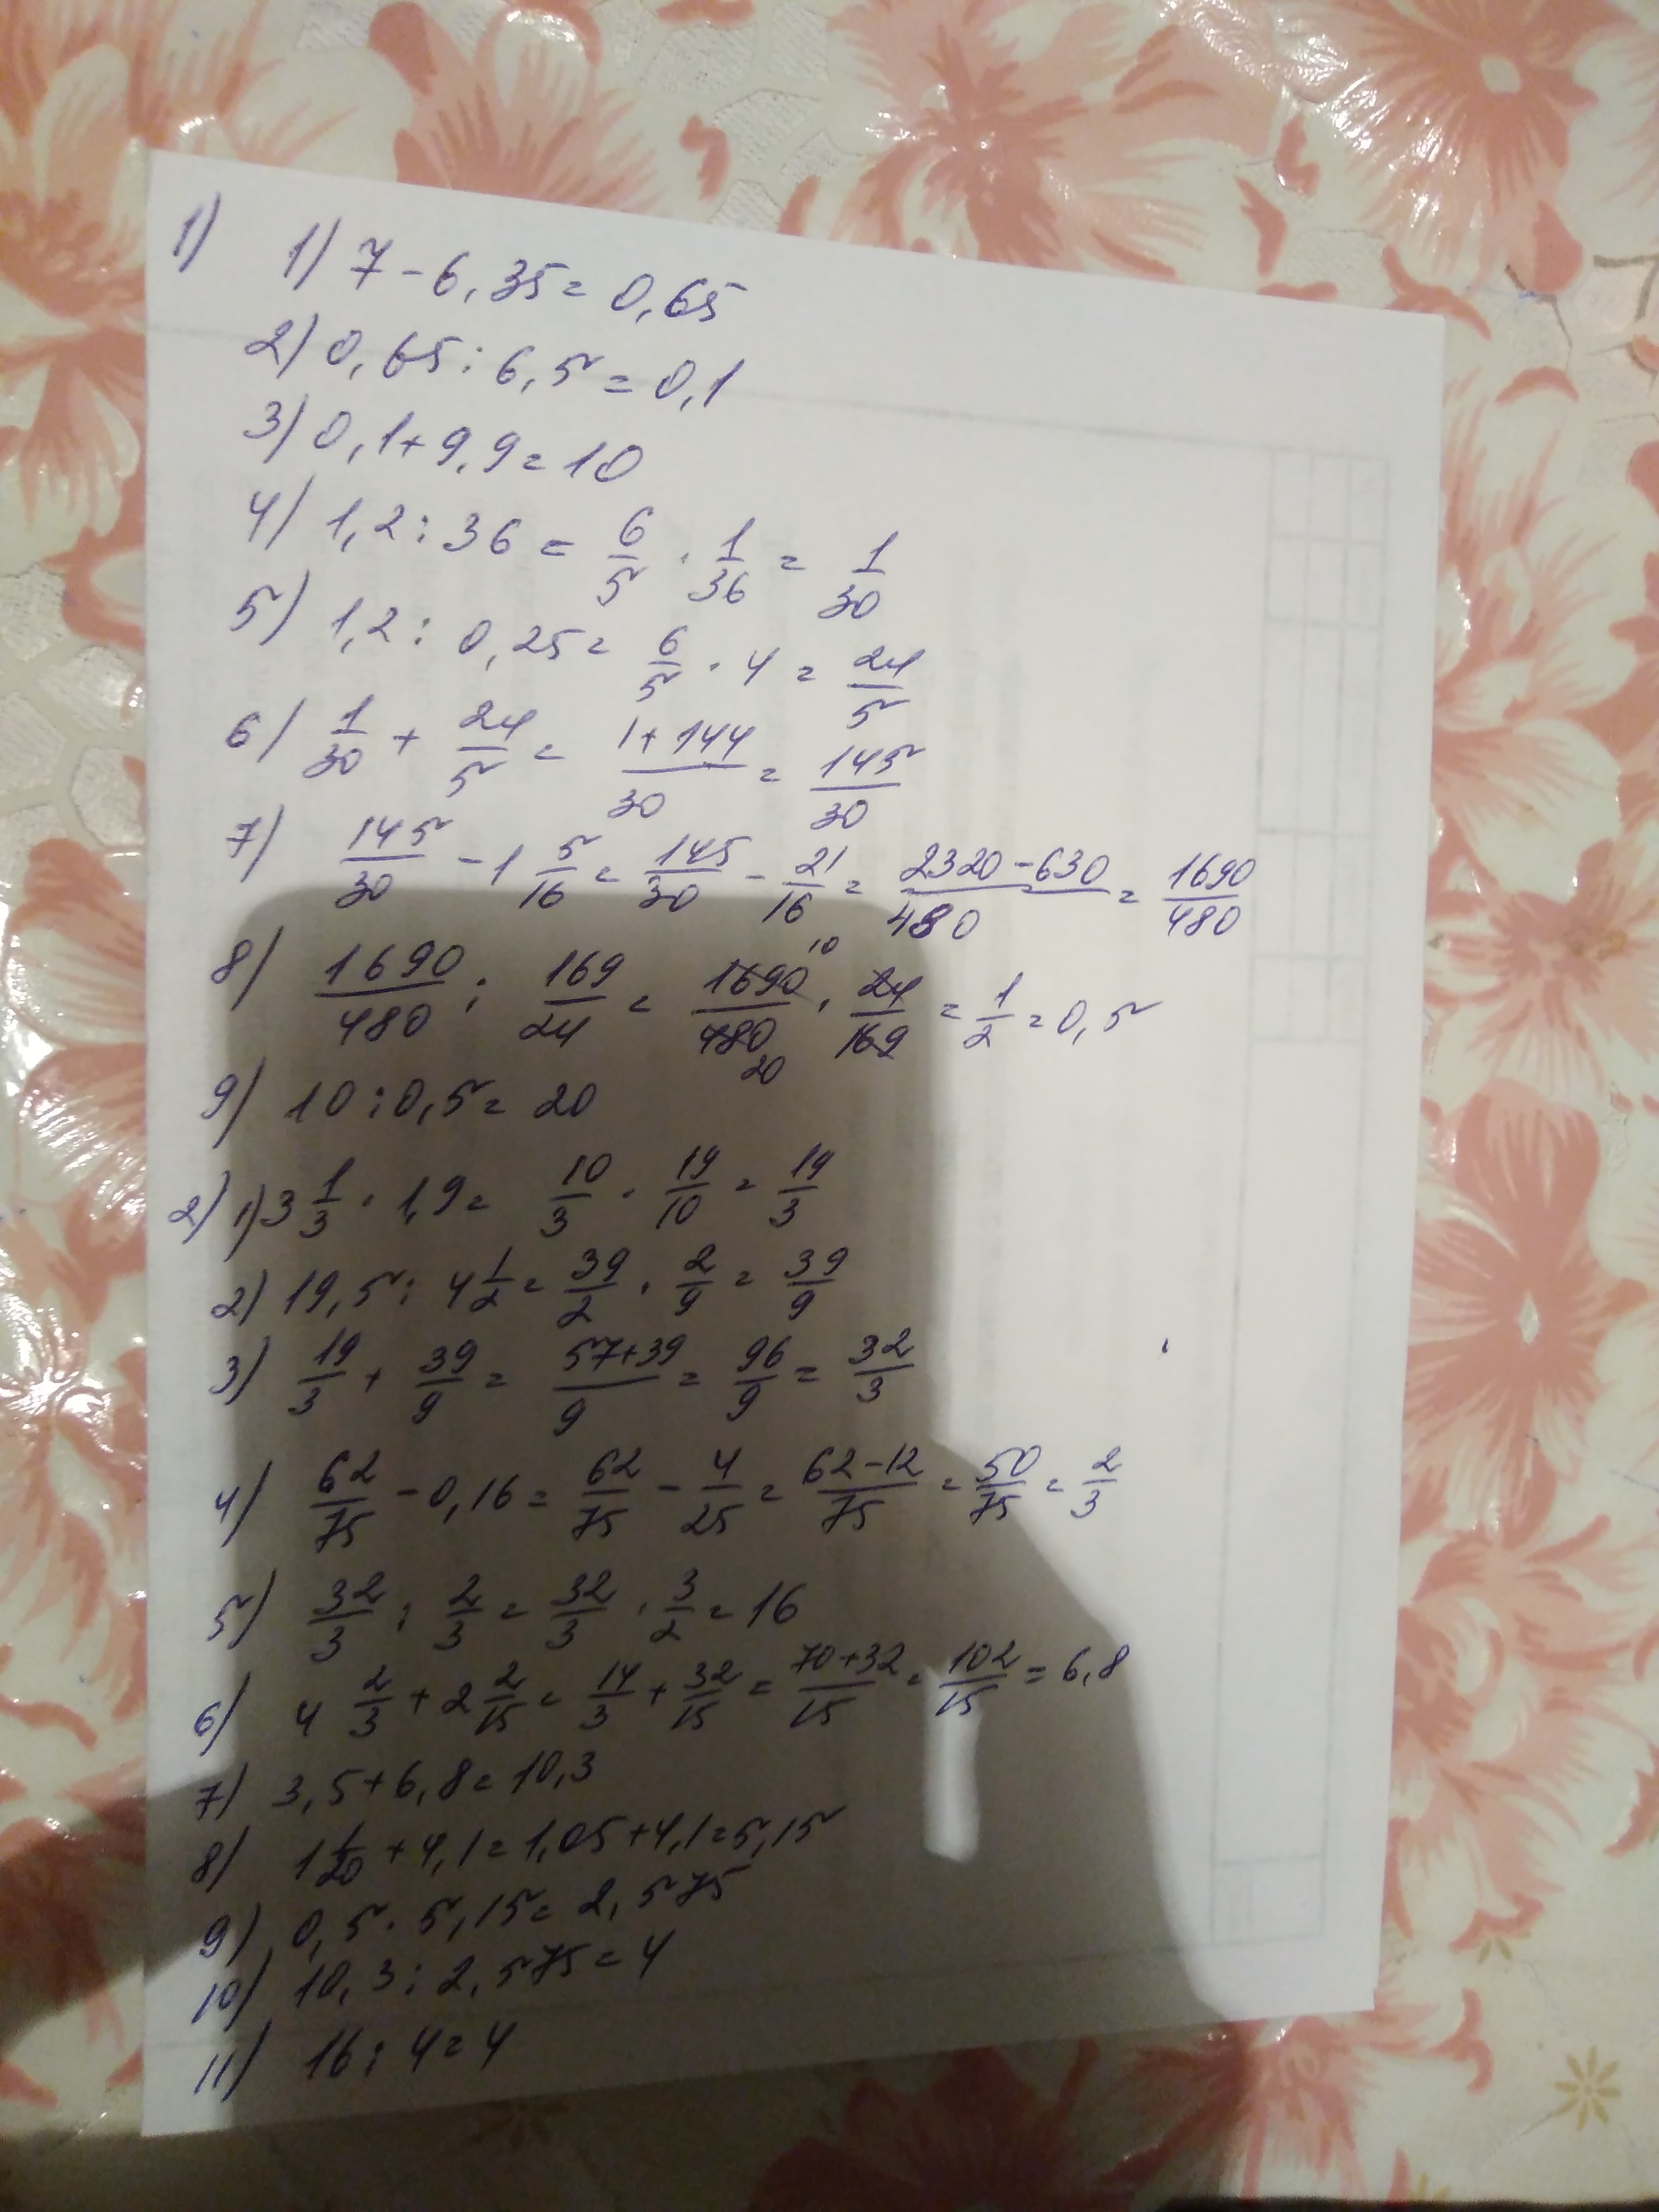 1) 1) 7 - 6,35 = 0,65
2) 0,65 : 6,5 = 0,1
3) 0,1 + 9,9 = 10
4) 1,2 : 36 = 6/5 · 1/36 = 1/30
5) 1,2 : 0,25 = 6/5 · 4 = 24/5
6) 1/30 + 24/5 = (1+144)/30 = 145/30
7) 145/30 - 1 5/16 = 145/30 - 21/16 = (2320-630)/480 = 1690/480
8) 1690/480 : 169/24 = 1690/480 10 20 · 24/169 = 1/2 = 0,5
9) 10 : 0,5 = 20
2) 1) 3 1/3 · 1,9 = 10/3 · 19/10 = 19/3
2) 19,5 : 4 1/2 = 39/2 · 2/9 = 39/9
3) 19/3 + 39/9 = (57+39)/9 = 96/9 = 32/3
4) 62/75 - 0,16 = 62/75 - 4/25 = (62-12)/75 = 50/75 = 2/3
5) 32/3 : 2/3 = 32/3 · 3/2 = 16
6) 4 2/3 + 2 2/15 = 14/3 + 32/15 = (70+32)/15 = 102/15 = 6,8
7) 3,5 + 6,8 = 10,3
8) 1 1/20 + 4,1 = 1,05 + 4,1 = 5,15
9) 0,5 · 5,15 = 2,575
10) 10,3 : 2,575 = 4
11) 16 : 4 = 4